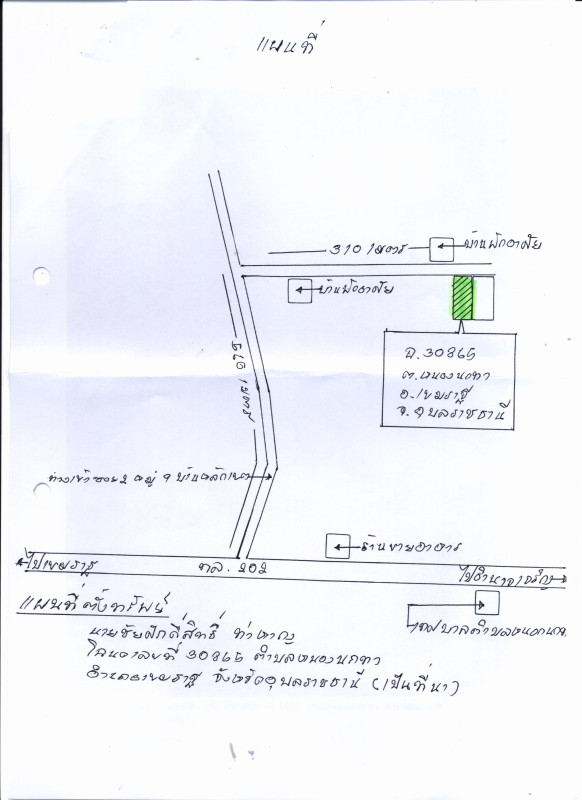 แผนที่
310 เมตร
บ้านพักอาศัย
บ้านพักอาศัย
ฉ.30865
ต.หนองนกทา
อ.เขมราฐ
จ.อุบลราชธานี
เมตร
ทางเข้าซอย 2 หมู่ 9
ร้านขายอาหาร
ไปเขมราฐ
ทล. 202
ไปอำนาจเจริญ
แผนที่ตั้งทรัพย์
เทศบาลตำบลหนองนกทา
นายชัยศักดิ์สิทธิ์
โฉนดเลขที่ 30865 ตำบลหนองนกทา
อำเภอเขมราฐ จังหวัดอุบลราชธานี (เป็นที่นา)